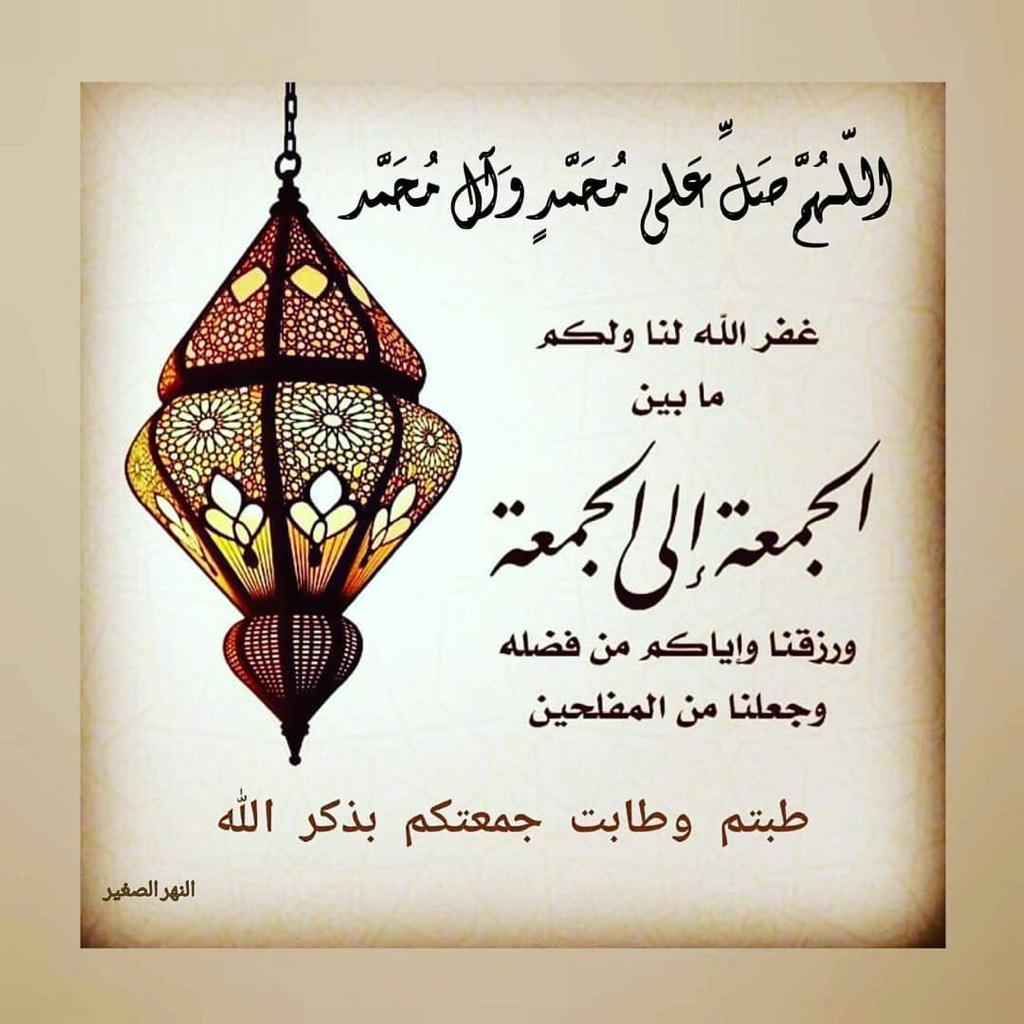 اللّهُمَّ صَلِّ عَلى مُحَمَّدٍ وَآلِ مُحَمَّد
غفر الله لنا ولكم
ما بين
الجمعة إلى الجمعة
ورزقنا وإياكم من فضله
وجعلنا من المفلحين
طبتم وطابت جمعتكم بذكر الله
النهر الصغير